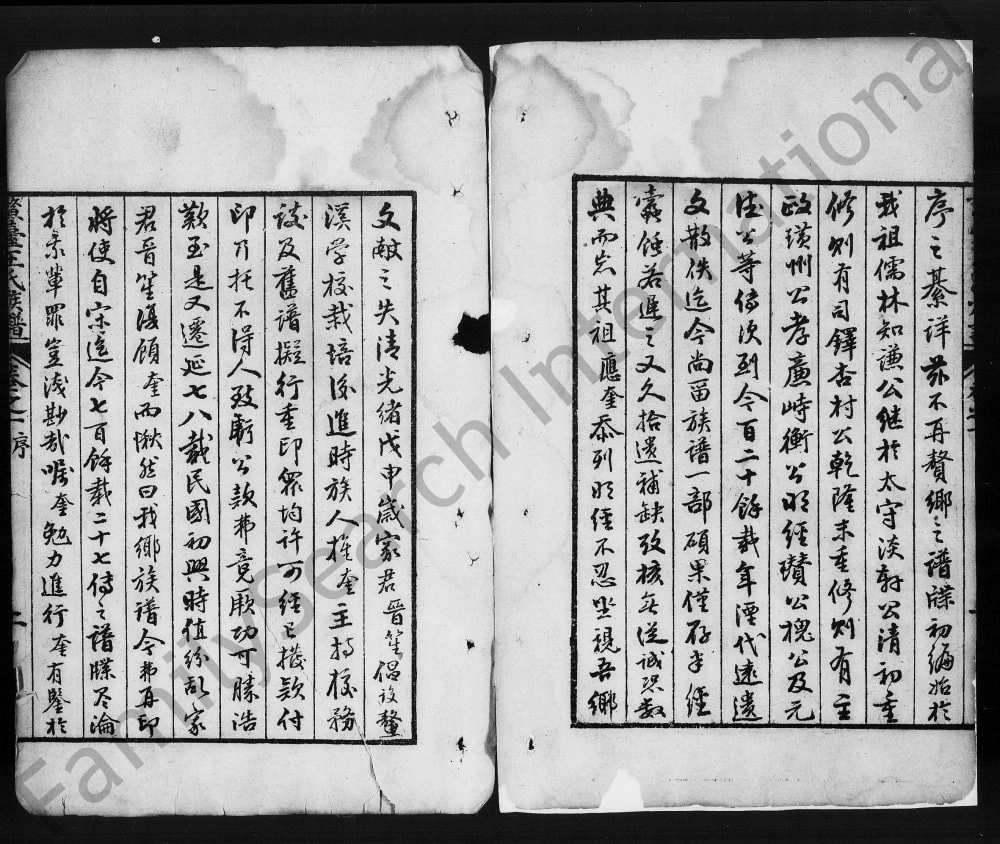 序之綦詳茲不再贅鄉之譜牒初編始於
我祖儒林知謙公继於太守淡軒公清初重
修則有司鐸杏村公乾隆末重修則有主
政璜州公孝廉峙衡公明經瓚公槐公及元
德公等傳次到今百二十餘載年湮代遠遺
文散佚迄今尚留族譜一部碩果僅存半經
蠹蝕若遲之又久拾遺補缺攷核無從诚恐数
典而忘其祖應奎忝列明經不忍坐視吾鄉
文献之失清光緒戊申歲家君晉笙倡设鳌
溪学校栽培後進時族人推奎主持校務
談及舊譜擬行重印眾均许可經已撥款付
印乃托不得人致虧公款弗竟厥功可勝浩
歎至是又遷延七八載民國初興時值紛亂家
君晉笙復顧奎而愀然曰我鄉族譜今弗再印
將使自宋迄今七百餘載二十七傳之譜牒尽淪
於余輩罪豈淺尠哉嘱奎勉力進行奎有鑒於
王氏族譜
卷之一 序
二
FamilySearch International